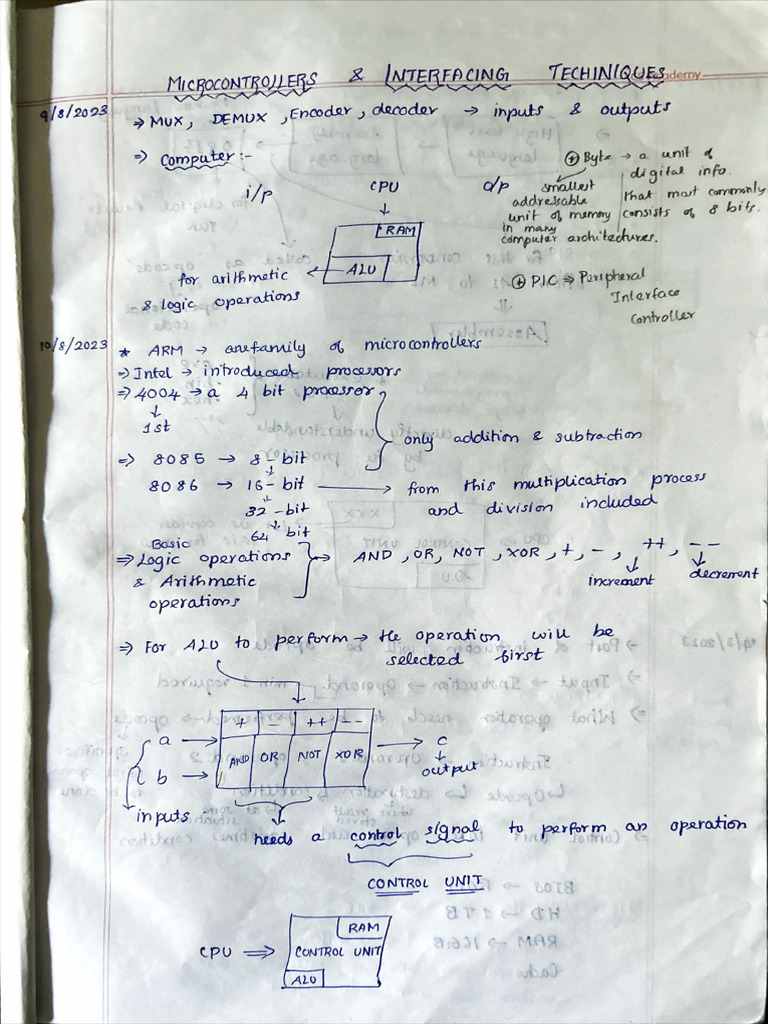 MICROCONTROLLERS & INTERFACING TECHINIQUES
9/8/2023 → MUX, DEMUX, Encoder, decoder → inputs & outputs
⇒ Computer :-
i/p CPU o/p
⊕ Byte → a unit of
digital info.
that most commonly
consists of 8 bits.
smallest
addressable
unit of memory
in many
computer architectures.
RAM
ALU
for arithmetic
& logic operations
⊕ PIC ⇒ Peripheral
Interface
Controller
10/8/2023 * ARM → one family of microcontrollers
⇒ Intel → introduced processors
⇒ 4004 → a 4 bit processor
1st
only addition & subtraction
⇒ 8085 → 8-bit
8086 → 16-bit → from this multiplication process
and division included
32-bit
64 bit
Basic
⇒ Logic operations → AND, OR, NOT, XOR, +, -, ++, --
& Arithmetic
operations
increment decrement
⇒ For ALU to perform → the operation will be
selected first
+ - ++ --
AND OR NOT XOR
a
b
c
output
inputs
needs a control signal to perform an operation
CONTROL UNIT
CPU ⇒
RAM
CONTROL UNIT
ALU